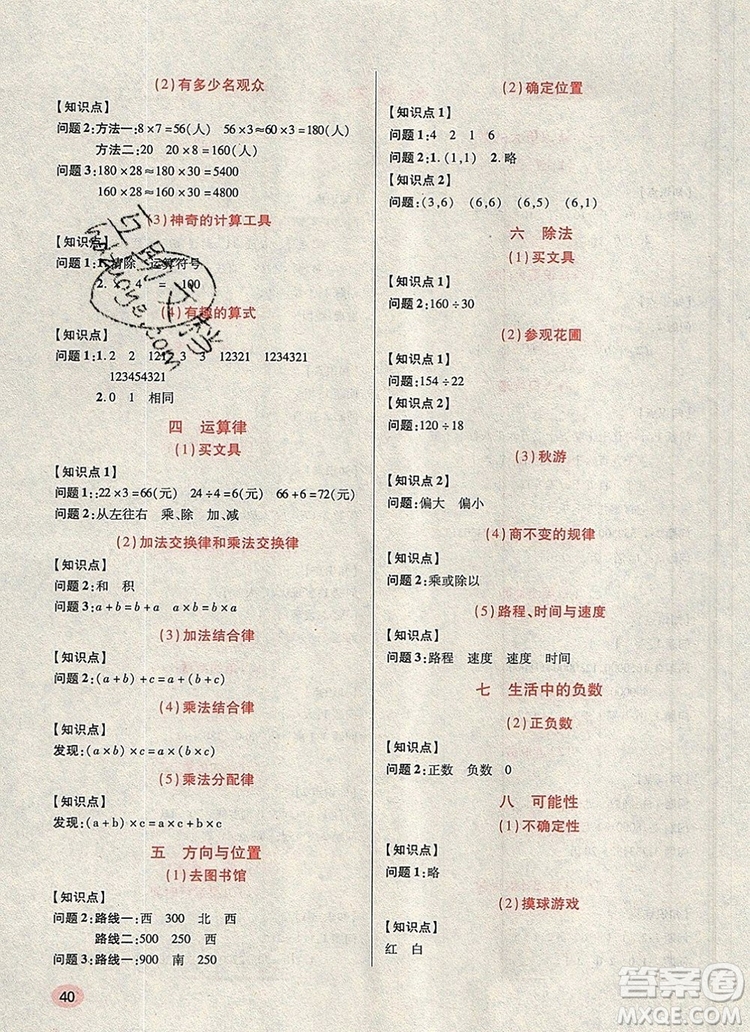 (2)有多少名观众
【知识点】
问题2:方法一:8×7=56(人) 56×3≈60×3=180(人)
方法二:20 20×8=160(人)
问题3:180×28≈180×30=5400
160×28≈160×30=4800
(3)神奇的计算工具
【知识点】
问题1:1.清除 运算符号
2. × 4 = 100
(4)有趣的算式
【知识点】
问题1:1.2 2 121 3 3 12321 1234321
123454321
2.0 1 相同
四 运算律
(1)买文具
【知识点】
问题1:22×3=66(元) 24÷4=6(元) 66+6=72(元)
问题2:从左往右 乘、除 加、减
(2)加法交换律和乘法交换律
【知识点】
问题2:和 积
问题3:a+b=b+a a×b=b×a
(3)加法结合律
【知识点】
问题2:(a+b)+c=a+(b+c)
(4)乘法结合律
【知识点】
发现:(a×b)×c=a×(b×c)
(5)乘法分配律
【知识点】
发现:(a+b)×c=a×c+b×c
五 方向与位置
(1)去图书馆
【知识点】
问题2:路线一:西 300 北 西
路线二:500 250 西
问题3:路线一:900 南 250
40
(2)确定位置
【知识点1】
问题1:4 2 1 6
问题2:1.(1,1) 2.略
【知识点2】
问题1:(3,6) (6,6) (6,5) (6,1)
六 除法
(1)买文具
【知识点2】
问题:160÷30
(2)参观花圃
【知识点1】
问题:154÷22
【知识点2】
问题:120÷18
(3)秋游
【知识点】
问题:偏大 偏小
(4)商不变的规律
【知识点】
问题2:乘或除以
(5)路程、时间与速度
【知识点】
问题3:路程 速度 速度 时间
七 生活中的负数
(2)正负数
【知识点】
问题2:正数 负数 0
八 可能性
(1)不确定性
【知识点】
问题1:略
(2)摸球游戏
【知识点】
红 白
答案圈
MXQE.COM